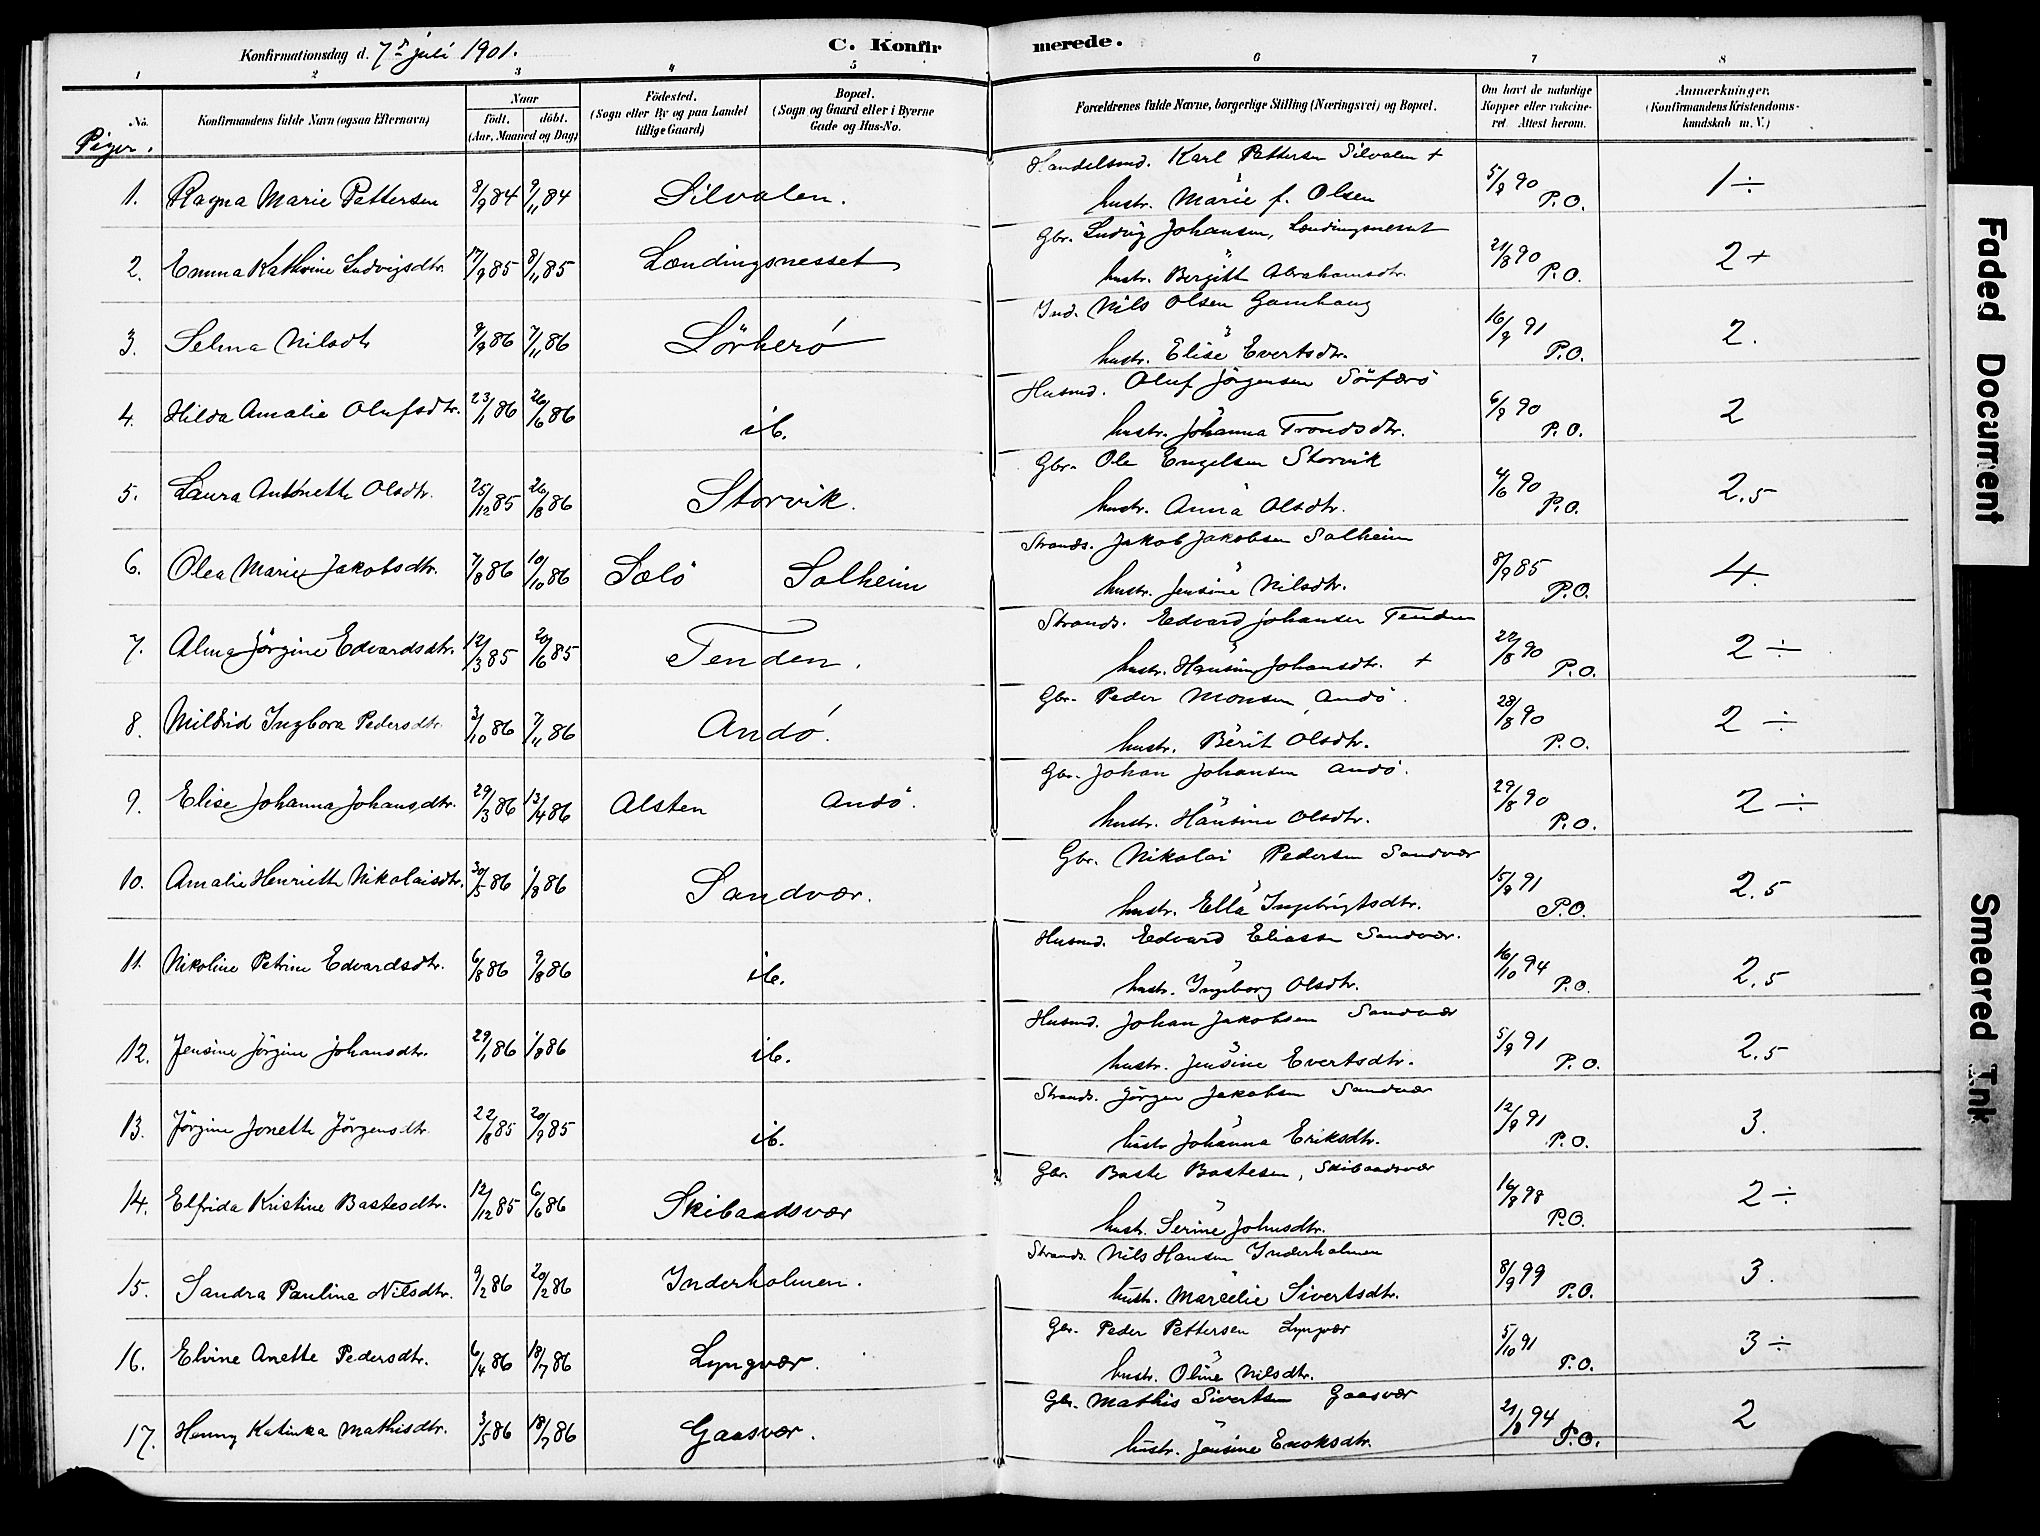 Konfirmationsdag d. 7de juli 1901.
C. Konfirmerede.
1 2 3 4 5 6 7 8
No. Konfirmandens fulde Navn (ogsaa Efternavn) Naar födt. döbt. (Aar, Maaned og Dag) Födested. (Sogn eller By og paa Landet tillige Gaard) Bopæl. (Sogn og Gaard eller i Byerne Gade og Hus-No. Forældrenes fulde Navne, borgerlige Stilling (Næringsvei) og Bopæl. Om havt de naturlige Kopper eller vakcineret. Attest herom. Anmærkninger. (Konfirmandens Kristendomskundskab m. V.)
Piger.
1. Ragna Marie Pettersen 8/9 84 9/11 84 Silvalen. Handelsmd. Karl Pettersen Silvalen + 5/9 90 P.O. 1 ÷
hustr. Marie f. Olsen
2. Emma Kathrine Ludvigsdtr. 17/9 85 8/11 85 Lændingsnesset Gbr. Ludvig Johansen, Lændingsnesset 21/8 90 P.O. 2 +
hustr. Bergitt Abrahamsdtr.
3. Selma Nilsdtr 9/9 86 7/11 86 Sörherö Ind. Nils Olsen Gamhaug 16/9 91 P.O. 2.
hustr. Elise Evertsdtr.
4. Hilda Amalie Olufsdtr. 23/1 86 26/6 86 ib. Husmd. Oluf Jörgensen 6/9 90 P.O. 2
hustr. Johanna Trondsdtr.
5. Laura Antonette Olsdtr. 25/12 85 26/8 86 Storvik. Gbr. Ole Engelsen Storvik 4/6 90 P.O. 2.5
hustr. Anna Olsdtr.
6. Olea Marie Jakobsdtr. 7/8 86 10/10 86 Solö Solheim Strands. Jakob Jakobsen Solheim 8/9 85 P.O. 4.
hustr. Jensine Nilsdtr.
7. Alma Jörgine Edvardsdtr. 12/3 85 20/6 85 Tenden. Strands. Edvard Johansen Tenden 22/8 90 P.O. 2 ÷
hustr. Hansine Johansdtr. +
8. Mildrid Ingbora Pedersdtr. 3/10 86 7/11 86 Andö. Gbr. Peder Monsen, Andö. 28/8 90 P.O. 2 ÷
hustr. Berit Olsdtr.
9. Elise Johanna Johansdtr. 29/3 86 13/4 86 Alsten Andö. Gbr. Johan Johansen Andö. 29/8 90 P.O. 2 ÷
hustr. Hansine Olsdtr.
10. Amalie Henriette Nikolaisdtr. 30/5 86 1/8 86 Sandvær. Gbr. Nikolai Pedersen Sandvær 15/9 91 P.O. 2.5
hustr. Ella Ingebrigtsdtr.
11. Nikoline Petrine Edvardsdtr. 6/8 86 9/8 86 ib. Husmd. Edvard Eliassen Sandvær. 16/10 94 P.O. 2.5
hustr. Ingeborg Olsdtr.
12. Jensine Jörgine Johansdtr. 29/1 86 1/8 86 ib. Husmd. Johan Jakobsen Sandvær 5/9 91 P.O. 2.5
hustr. Jensine Evertsdtr.
13. Jörgine Jonette Jörgensdtr. 22/8 85 20/9 85 ib. Strands. Jörgen Jakobsen Sandvær 12/9 91 P.O. 3.
hustr Johanna Eriksdtr.
14. Elfrida Kristine Bastesdtr. 12/12 85 6/6 86 Skibaadsvær Gbr. Baste Bastesen, Skibaadsvær 16/8 98 P.O. 2 ÷
hustr. Serine Johnsdtr.
15. Sandra Pauline Nilsdtr. 9/2 86 20/2 86 Inderholmen. Strands. Nils Hansen Inderholmen 8/9 99 P.O. 3.
hustr. Marselie Sivertsdtr.
16. Elvine Anette Pedersdtr. 6/4 86 18/7 86 Lyngvær. Gbr. Peder Pettersen Lyngvær 5/10 91 P.O. 3 ÷
hustr. Oline Nilsdtr.
17. Henny Katinka Mathisdtr. 3/5 86 18/7 86 Gaasvær. Gbr. Mathis Sivertsen Gaasvær 21/8 94 P.O. 2
hustr. Jensine Enoksdtr.
Faded Document
Smeared Ink